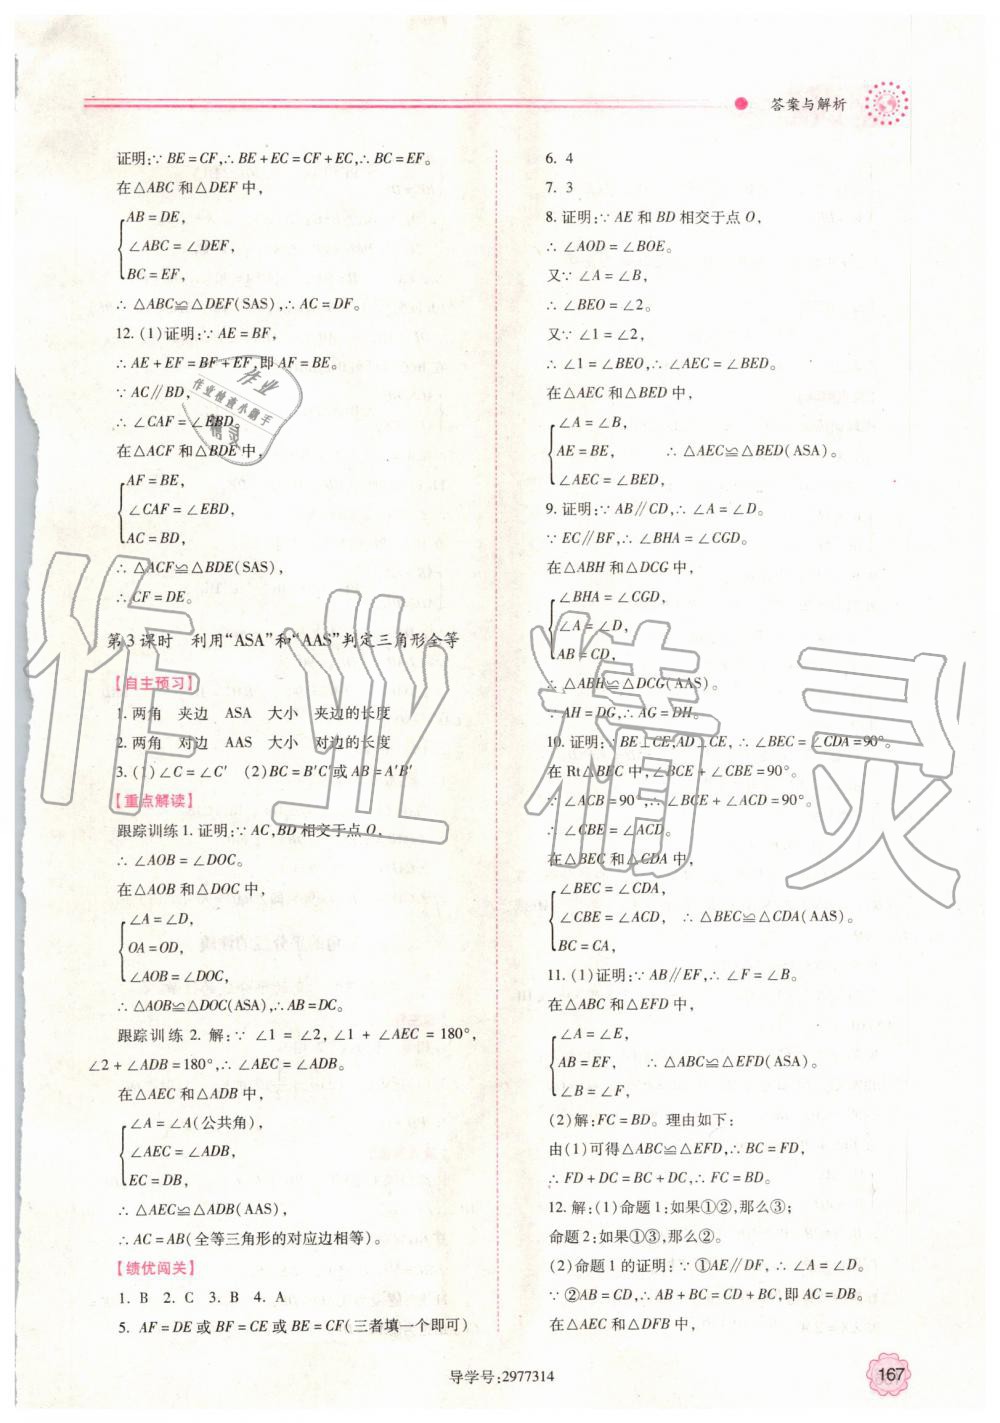 答案与解析
证明:∵ BE = CF,∴ BE + EC = CF + EC,∴ BC = EF。
在△ABC 和△DEF 中,
AB = DE,
∠ABC = ∠DEF,
BC = EF,
∴ △ABC≌△DEF(SAS),∴ AC = DF。
12. (1)证明:∵ AE = BF,
∴ AE + EF = BF + EF,即 AF = BE。
∵ AC∥BD,
∴ ∠CAF = ∠EBD。
在△ACF 和△BDE 中,
AF = BE,
∠CAF = ∠EBD,
AC = BD,
∴ △ACF≌△BDE(SAS),
∴ CF = DE。
第 3 课时 利用“ASA”和“AAS”判定三角形全等
【自主预习】
1. 两角 夹边 ASA 大小 夹边的长度
2. 两角 对边 AAS 大小 对边的长度
3. (1)∠C = ∠C′ (2)BC = B′C′或 AB = A′B′
【重点解读】
跟踪训练 1. 证明:∵ AC,BD 相交于点 O,
∴ ∠AOB = ∠DOC。
在△AOB 和△DOC 中,
∠A = ∠D,
OA = OD,
∠AOB = ∠DOC,
∴ △AOB≌△DOC(ASA),∴ AB = DC。
跟踪训练 2. 解:∵ ∠1 = ∠2, ∠1 + ∠AEC = 180°,
∠2 + ∠ADB = 180°,∴ ∠AEC = ∠ADB。
在△AEC 和△ADB 中,
∠A = ∠A(公共角),
∠AEC = ∠ADB,
EC = DB,
∴ △AEC≌△ADB(AAS),
∴ AC = AB(全等三角形的对应边相等)。
【绩优闯关】
1. B 2. C 3. B 4. A
5. AF = DE 或 BF = CE 或 BE = CF(三者填一个即可)
6. 4
7. 3
8. 证明:∵ AE 和 BD 相交于点 O,
∴ ∠AOD = ∠BOE。
又∵ ∠A = ∠B,
∴ ∠BEO = ∠2。
又∵ ∠1 = ∠2,
∴ ∠1 = ∠BEO,∴ ∠AEC = ∠BED。
在△AEC 和△BED 中,
∠A = ∠B,
AE = BE, ∴ △AEC≌△BED(ASA)。
∠AEC = ∠BED,
9. 证明:∵ AB∥CD,∴ ∠A = ∠D。
∵ EC∥BF,∴ ∠BHA = ∠CGD。
在△ABH 和△DCG 中,
∠BHA = ∠CGD,
∠A = ∠D,
AB = CD,
∴ △ABH≌△DCG(AAS)。
∴ AH = DG,∴ AG = DH。
10. 证明:∵ BE⊥CE,AD⊥CE, ∴ ∠BEC = ∠CDA = 90°。
在 Rt△BEC 中,∠BCE + ∠CBE = 90°。
∵ ∠ACB = 90°,∴ ∠BCE + ∠ACD = 90°。
∴ ∠CBE = ∠ACD。
在△BEC 和△CDA 中,
∠BEC = ∠CDA,
∠CBE = ∠ACD, ∴ △BEC≌△CDA(AAS)。
BC = CA,
11. (1)证明:∵ AB∥EF,∴ ∠F = ∠B。
在△ABC 和△EFD 中,
∠A = ∠E,
AB = EF, ∴ △ABC≌△EFD(ASA)。
∠B = ∠F,
(2)解:FC = BD。理由如下:
由(1)可得△ABC≌△EFD,∴ BC = FD,
∴ FD + DC = BC + DC,∴ FC = BD。
12. 解:(1)命题 1:如果①②,那么③;
命题 2:如果①③,那么②。
(2)命题 1 的证明:∵ ①AE∥DF, ∴ ∠A = ∠D。
∵ ②AB = CD,∴ AB + BC = CD + BC,即 AC = DB。
在△AEC 和△DFB 中,
导学号:2977314
167
作业
作业检查小助手
精灵
作业精灵